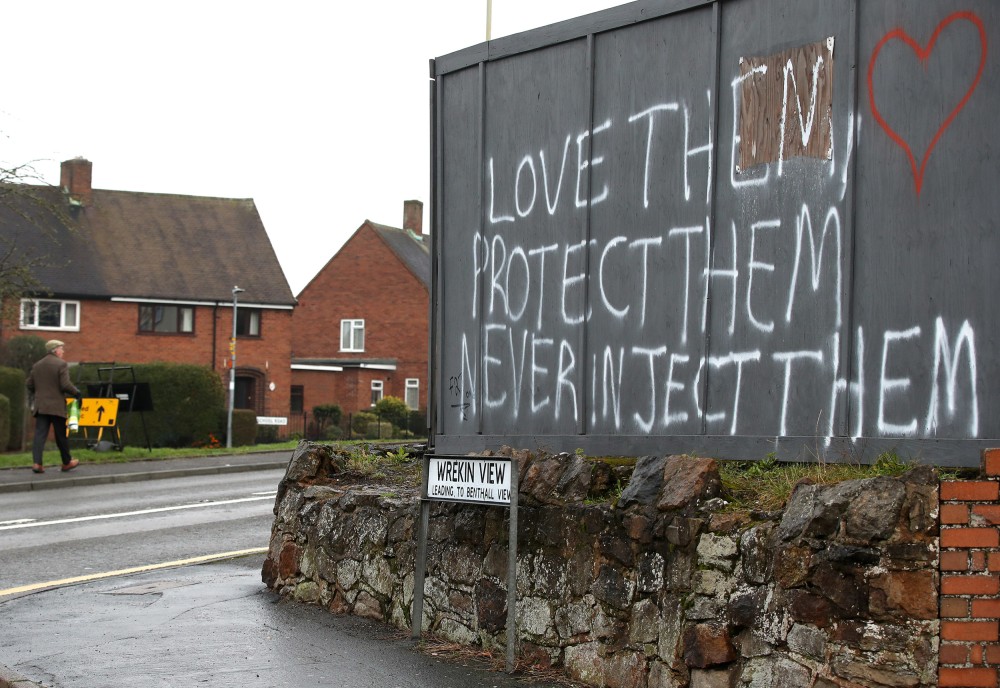 LOVE THEM
PROTECT THEM
NEVER INJECT THEM
WREKIN VIEW
LEADING TO BENTHALL VIEW